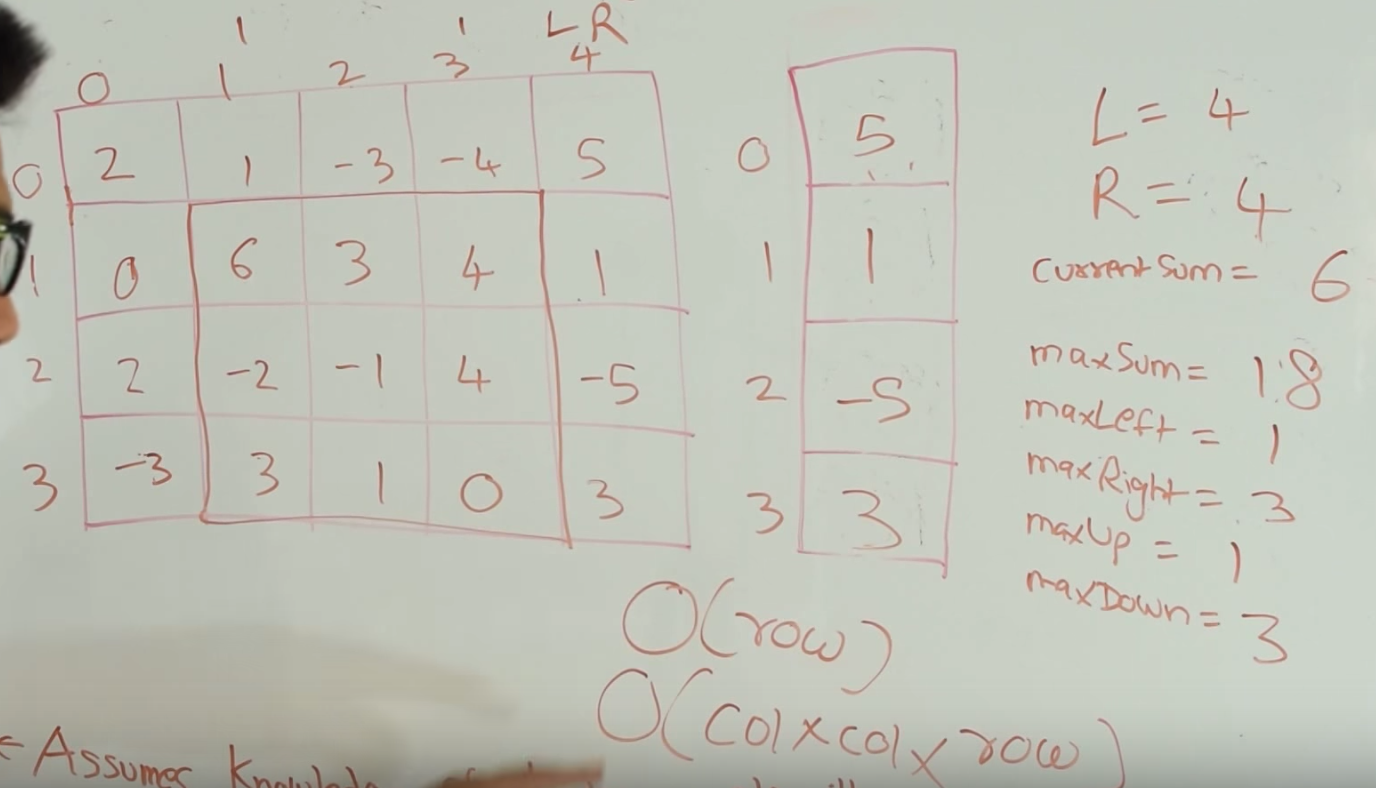 1 1 L R
0 1 2 3 4
0 2 1 -3 -4 5
1 0 6 3 4 1
2 2 -2 -1 4 -5
3 -3 3 1 0 3
0 5
1 1
2 -5
3 3
L = 4
R = 4
currentSum = 6
maxSum = 18
maxLeft = 1
maxRight = 3
maxUp = 1
maxDown = 3
O(row)
O(col x col x row)
Assumes